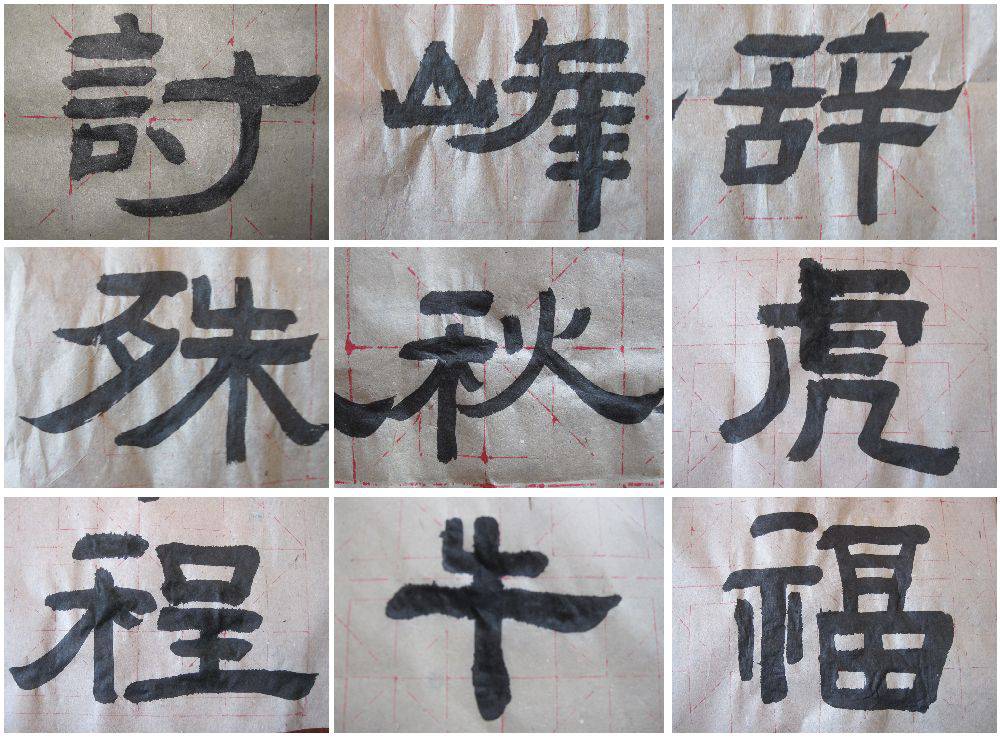 討峰辭
殊秋虎
程牛福